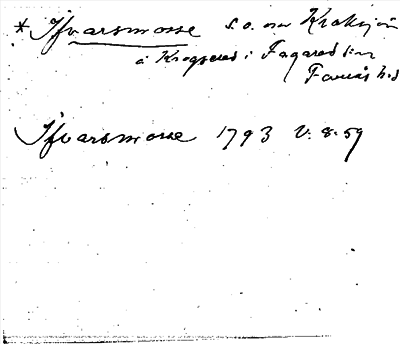 * Ifvarsmosse S.o. om Kroksjön
å Krogsered i Fagared s:n
Faurås h:d
Ifvarsmosse 1793 V. 8. 59